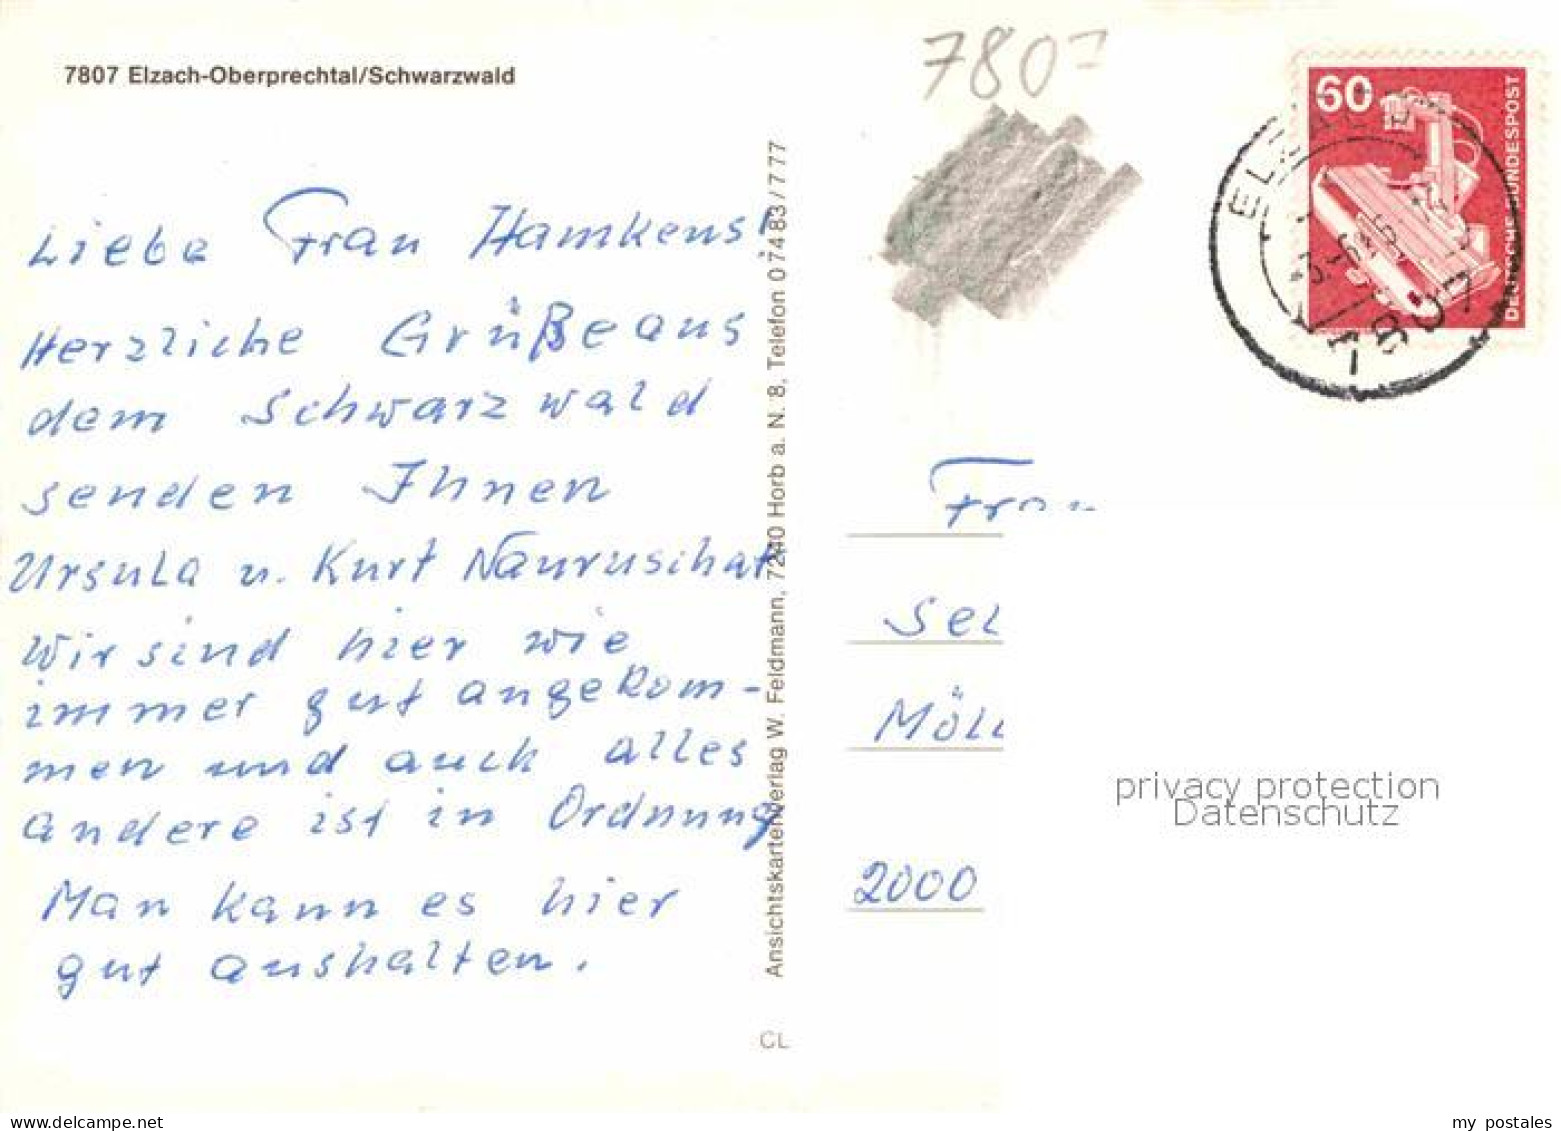 7807 Elzach-Oberprechtal/Schwarzwald
Liebe Frau Hamkens!
Herzliche Grüße aus
dem Schwarzwald
senden Ihnen
Ursula u. Kurt
Wir sind hier wie
immer gut angekom-
men und auch alles
andere ist in Ordnung
Man kann es hier
gut aushalten.
Ansichtskartenverlag W. Feldmann, 7240 Horb a. N. 8, Telefon 07483/777
CL
7807
60
DEUTSCHE BUNDESPOST
ELZACH
7807
Frau
Sel
Möll
2000
privacy protection
Datenschutz
www.delcampe.net
my_postales